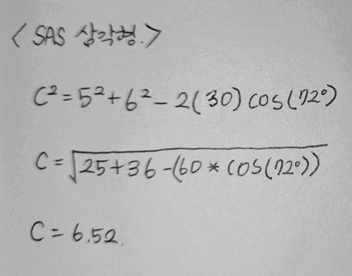 < SAS 삼각형.>
C²=5²+6²-2(30)cos(72°)
C=√25+36-(60*cos(72°))
C=6.52.